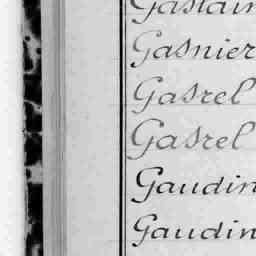 Gaslain
Gasnier
Gasrel
Gasrel
Gaudin
Gaudin